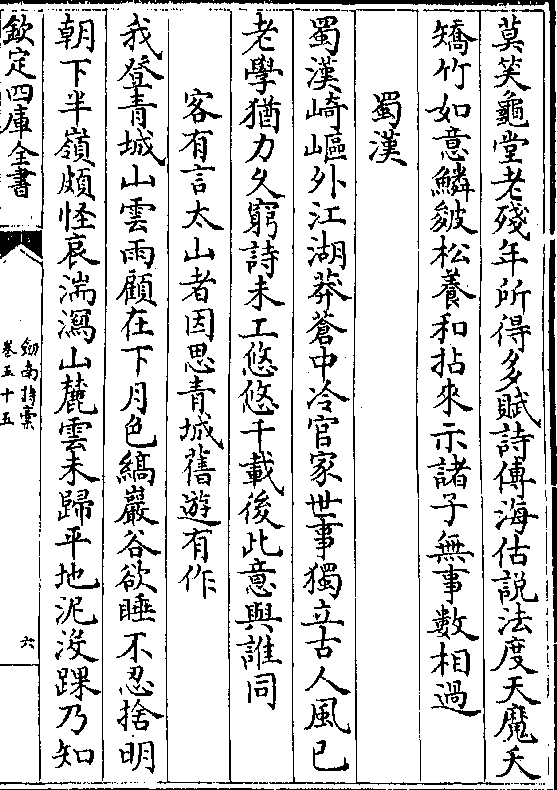 莫笑龜堂老殘年所得多賦詩傳海估説法度天魔夭
矯竹如意鱗皴松養和拈來示諸子無事數相過
蜀漢
蜀漢崎嶇外江湖莽蒼中冷官家世事獨立古人風已
老學猶力久窮詩未工悠悠千載後此意與誰同
客有言太山者因思青城舊遊有作
我登青城山雲雨顧在下月色縞巖谷欲睡不忍捨明
朝下半嶺頗怪哀湍瀉山麓雲未歸平地泥没踝乃知
欽定四庫全書
劒南詩稾
卷五十五
六